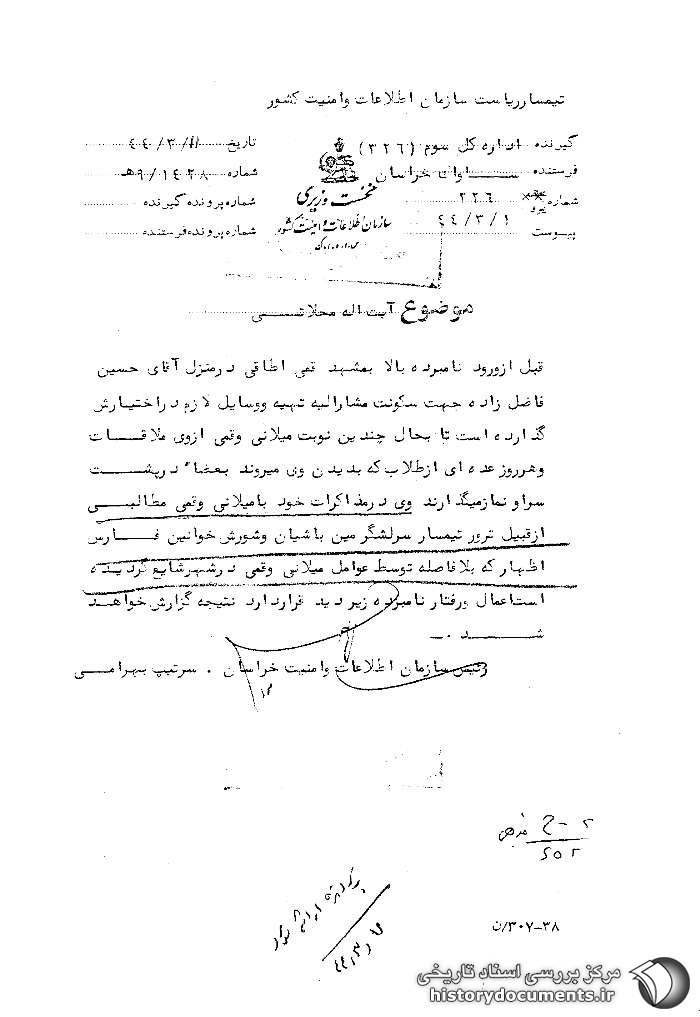 تیمسار ریاست سازمان اطلاعات و امنیت کشور
گیرنده اداره کل سوم (۳۲۶)
فرستنده ساواک خراسان
شماره نیرو ۲۲۶
پیوست ۴۴/۳/۱
نخست وزیری
سازمان اطلاعات و امنیت کشور
س.ا.و.ا.ک
تاریخ ۴۴/۳/۱۱
شماره ۹/۱۴۲۸ﻫ
شماره پرونده گیرنده
شماره پرونده فرستنده
موضوع آیت اله محلاتی
قبل از ورود نامبرده بالا بمشهد قمی اطاقی در منزل آقای حسین
فاضل زاده جهت سکونت مشارالیه تهیه و وسایل لازم در اختیارش
گذارده است تا بحال چندین نوبت میلانی و قمی از وی ملاقات
و هر روز عده ای از طلاب که بدیدن وی میروند بعضاً در پشت
سر او نماز میگذارند وی در مذاکرات خود با میلانی و قمی مطالبی
از قبیل ترور تیمسار سرلشگر مین باشیان و شورش خوانین فارس
اظهار که بلافاصله توسط عوامل میلانی و قمی در شهر شایع گردیده
است اعمال و رفتار نامبرده زیر دید قرار دارد نتیجه گزارش خواهد
شد .ـ
رئیس سازمان اطلاعات و امنیت خراسان . سرتیپ بهرامی
۲ - ح مذهبی
۶۰۲
۳۰۷-۳۸/ن
مرکز بررسی اسناد تاریخی
historydocuments.ir